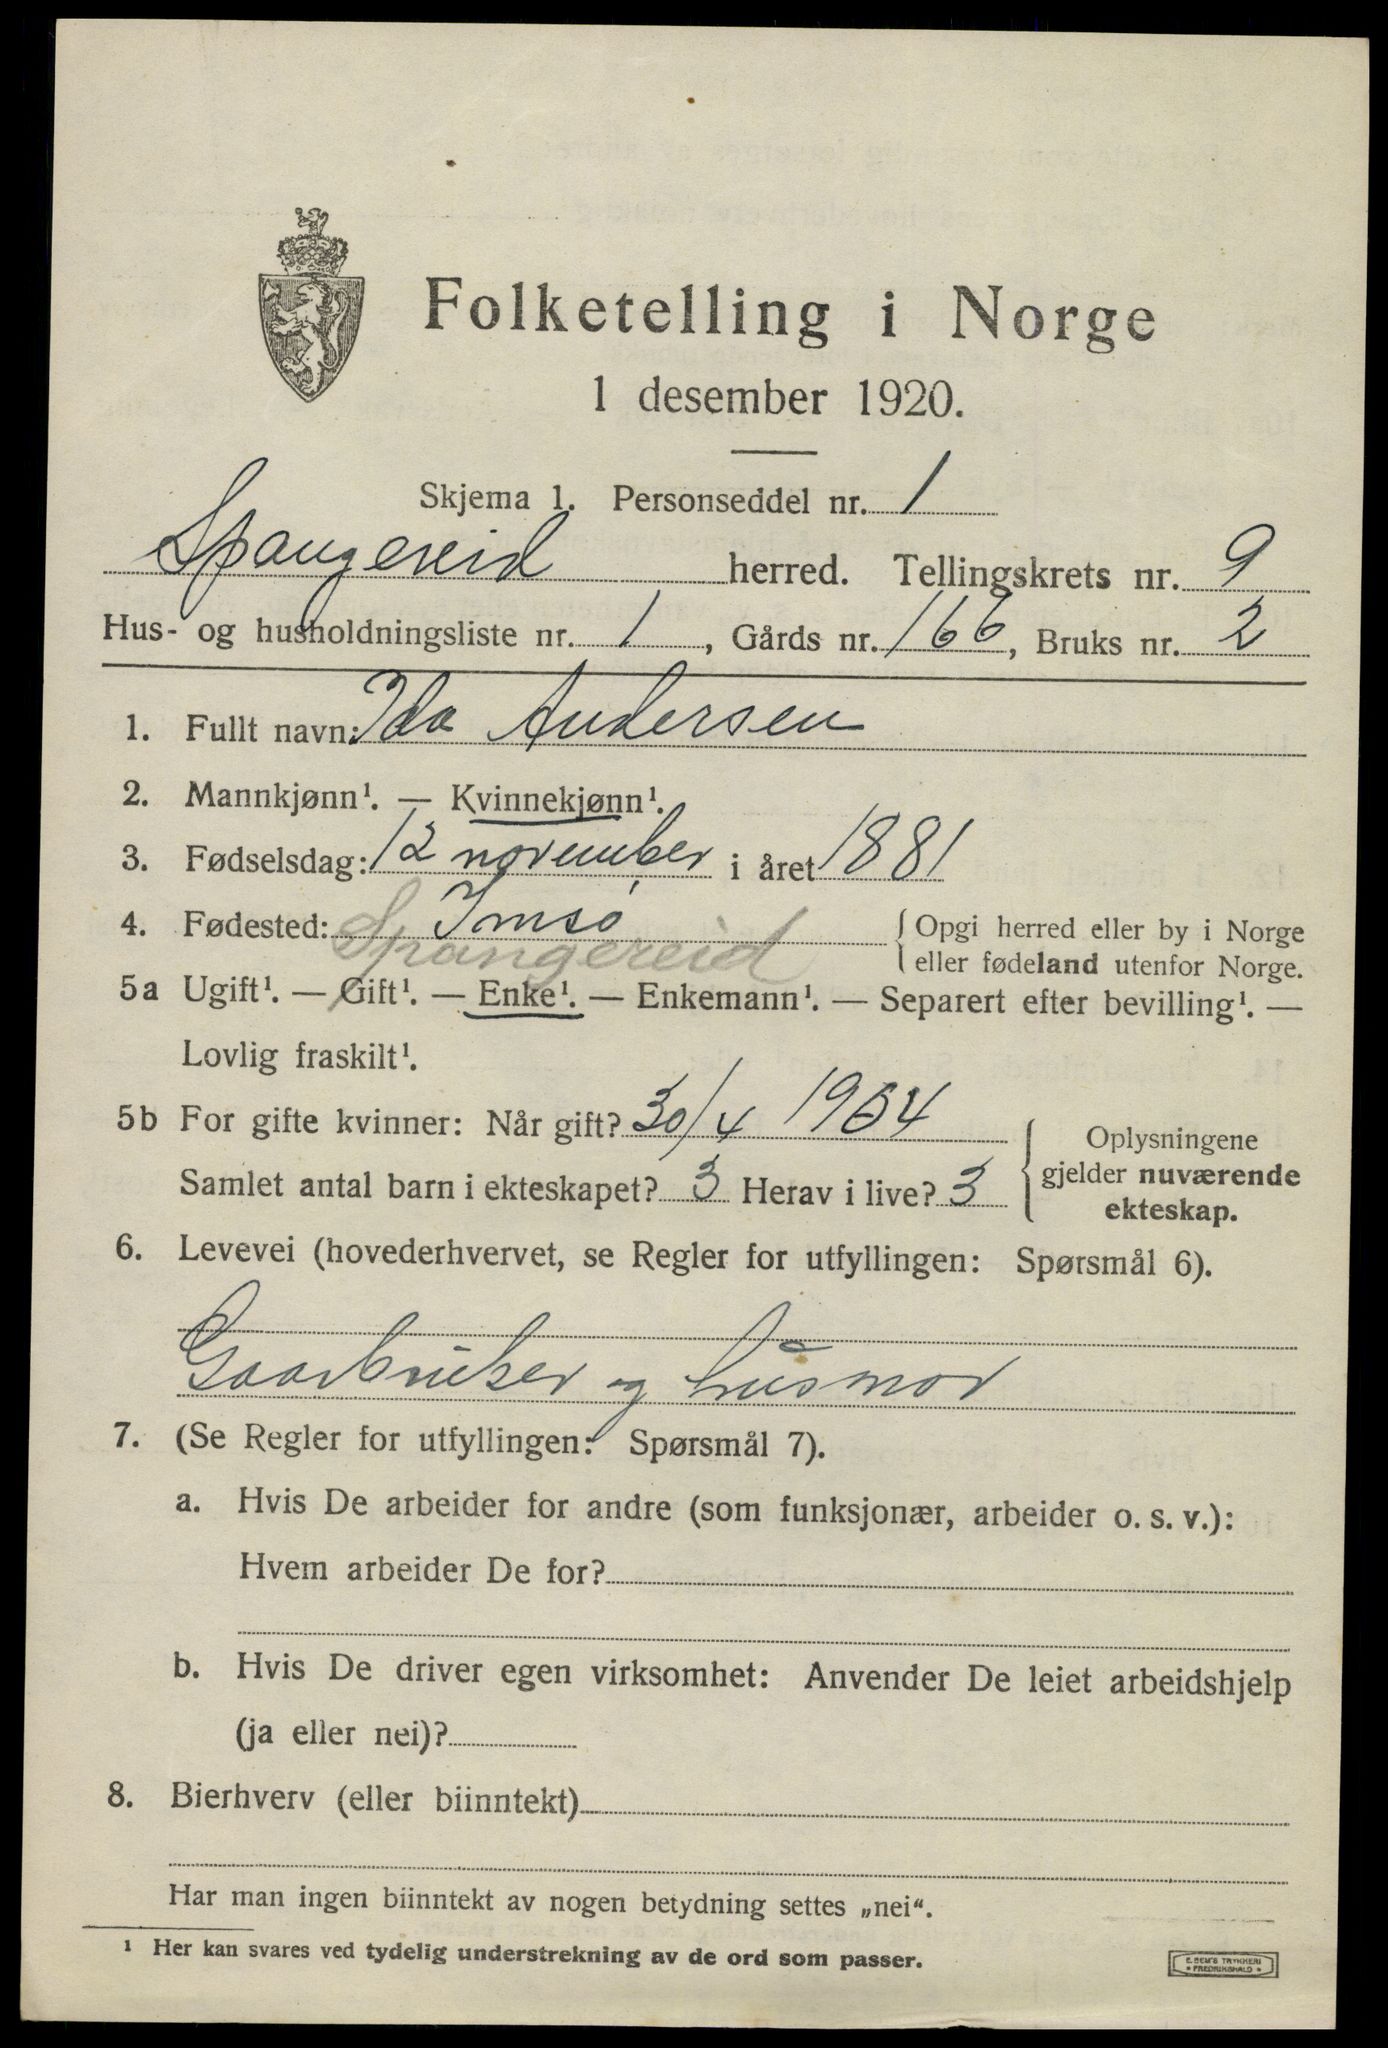 Folketelling i Norge
1 desember 1920.
Skjema 1. Personseddel nr. 1
Spangereid herred. Tellingskrets nr. 9
Hus- og husholdningsliste nr. 1, Gårds nr. 166, Bruks nr. 2
1. Fullt navn: Ida Andersen
2. Mannkjønn¹. — Kvinnekjønn¹.
3. Fødselsdag: 12 november i året 1881
4. Fødested: Imsø { Opgi herred eller by i Norge
Spangereid eller fødeland utenfor Norge.
5a Ugift¹. — Gift¹. — Enke¹. — Enkemann¹. — Separert efter bevilling¹. —
Lovlig fraskilt¹.
5b For gifte kvinner: Når gift? 30/4 1904
Samlet antal barn i ekteskapet? 3 Herav i live? 3
{ Oplysningene
gjelder nuværende
ekteskap.
6. Levevei (hovederhvervet, se Regler for utfyllingen: Spørsmål 6).
Gaarbruker og husmor
7. (Se Regler for utfyllingen: Spørsmål 7).
a. Hvis De arbeider for andre (som funksjonær, arbeider o. s. v.):
Hvem arbeider De for?
b. Hvis De driver egen virksomhet: Anvender De leiet arbeidshjelp
(ja eller nei)?
8. Bierhverv (eller biinntekt)
Har man ingen biinntekt av nogen betydning settes „nei“.
¹ Her kan svares ved tydelig understrekning av de ord som passer.
E. SEM'S TRYKKERI
• FREDRIKSHALD •